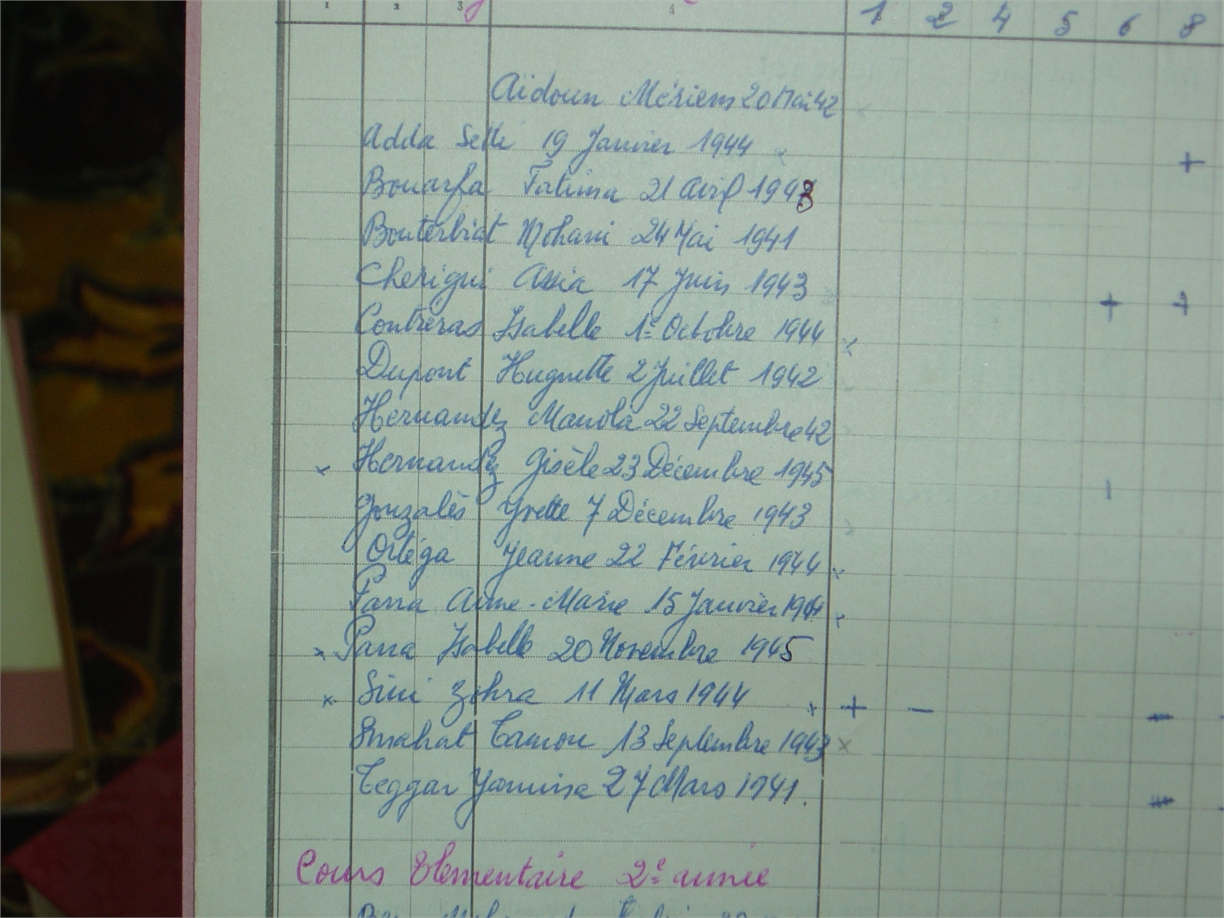 1 2 3 4 1 2 4 5 6 8
Aïdoun Mériem 20 Mai 42
Adda Setti 19 Janvier 1944
Bouarfa Fatima 21 Avril 1943
Bouterbiat Mohani 24 Mai 1941
Cherigui Assia 17 Juin 1943
Contréras Isabelle 1e Octobre 1944
Dupont Huguette 2 Juillet 1942
Hernandez Manola 22 Septembre 42
x Hernandez Gisèle 23 Décembre 1945
Gonzalès Yvette 7 Décembre 1943
Ortéga Jeanne 22 Février 1944
Parra Anne-Marie 15 Janvier
x Parra Isabelle 20 Novembre 1945
x Sini Zohra 11 Mars 1944
Smahat 13 Septembre 1943
Teggar Yamina 27 Mars 1941.
Cours Elementaire 2e année